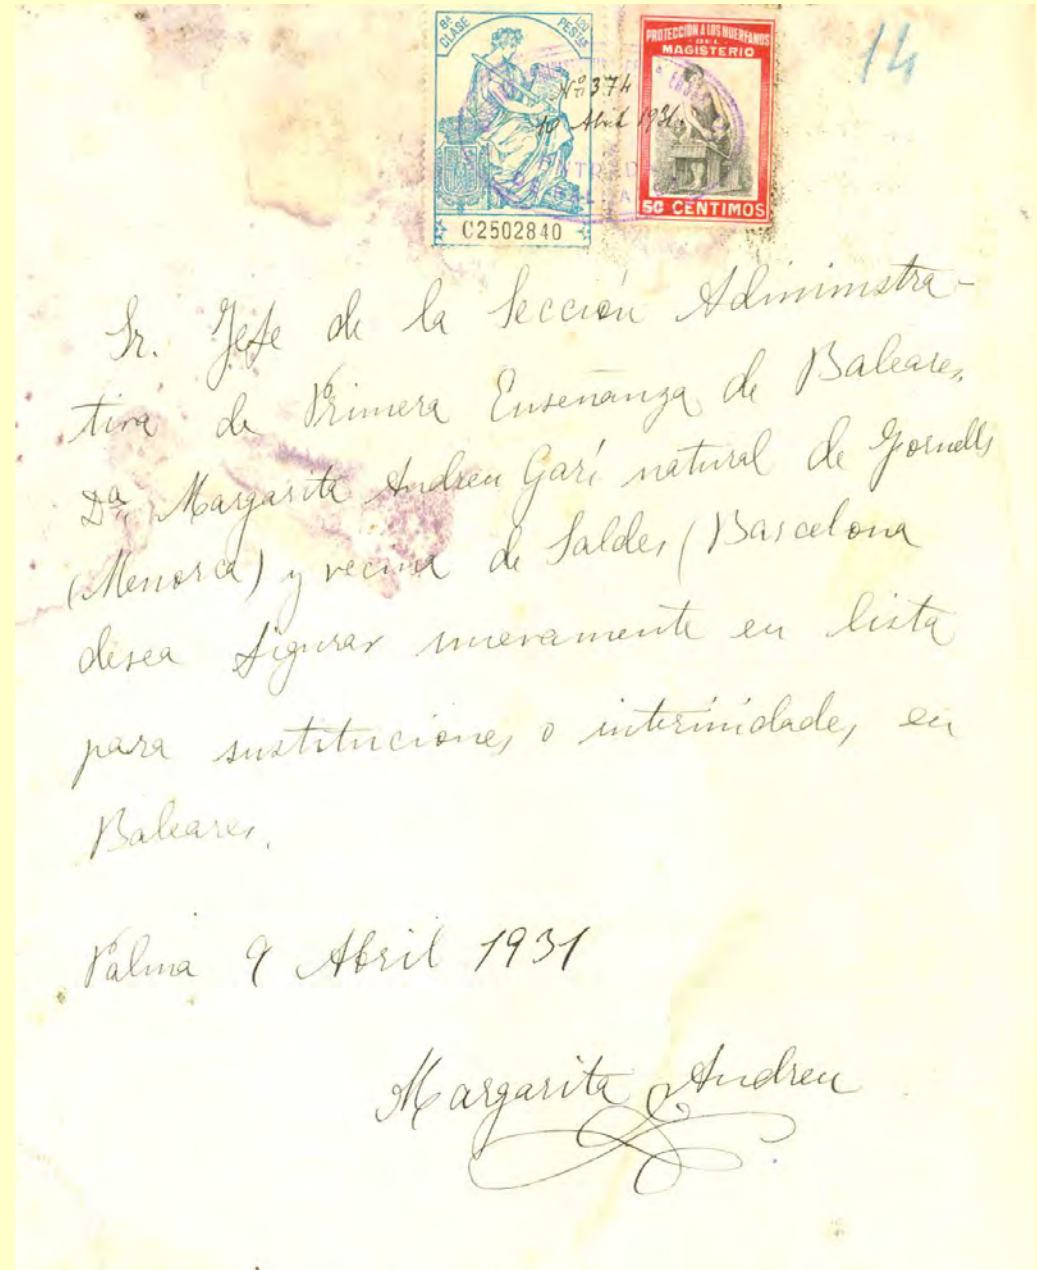 8ª CLASE
120 PESTAS
PROTECCION A LOS HUERFANOS
DEL
MAGISTERIO
14
Nº 374
10 Abril 1931
50 CENTIMOS
C2502840
Sr. Jefe de la Sección Administra-
tiva de Primera Enseñanza de Baleares.
Dª Margarita Andreu Garí natural de Fornells
(Menorca) y vecina de Saldes (Barcelona
desea figurar nuevamente en lista
para sustituciones o interinidades en
Baleares.
Palma 9 Abril 1931
Margarita Andreu